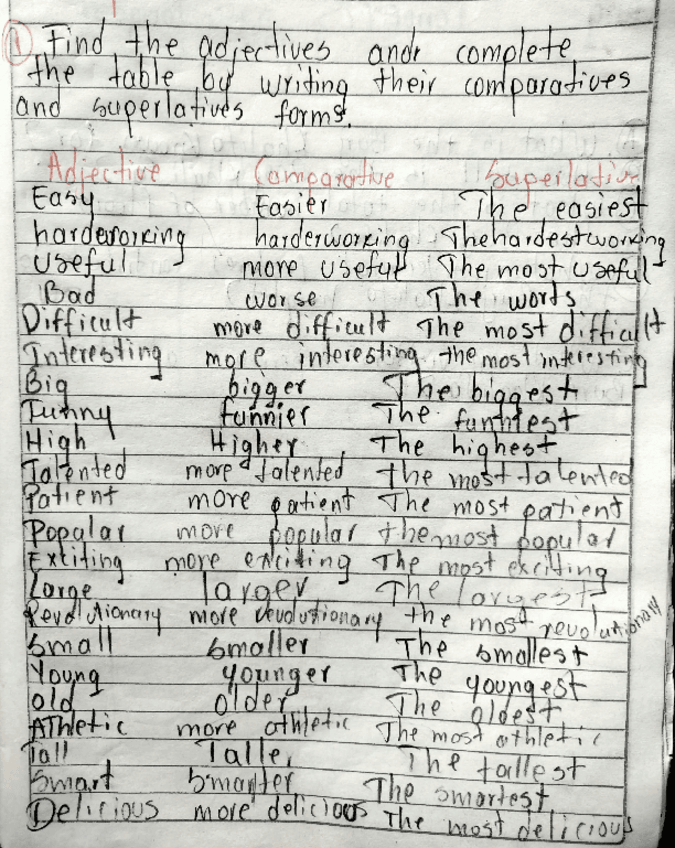 1 Find the adjectives and complete
the table by writing their comparatives
and superlatives forms.
Adjective Comparative Superlative
Easy Easier The easiest
harderworking harderworking The hardestworking
Useful more useful The most useful
Bad worse The worts
Difficult more difficult The most difficult
Interesting more interesting the most interesting
Big bigger The biggest
Funny funnier The funniest
High Higher The highest
Talented more talented the most talented
Patient more patient The most patient
Popular more popular the most popular
Exciting more exciting The most exciting
Large larger The largest
Revolutionary more revolutionary the most revolutionary
Small Smaller The smallest
Young younger The youngest
old older The oldest
AThletic more athletic The most athletic
Tall Taller The tallest
Smart Smarter The smartest
Delicious more delicious The most delicious